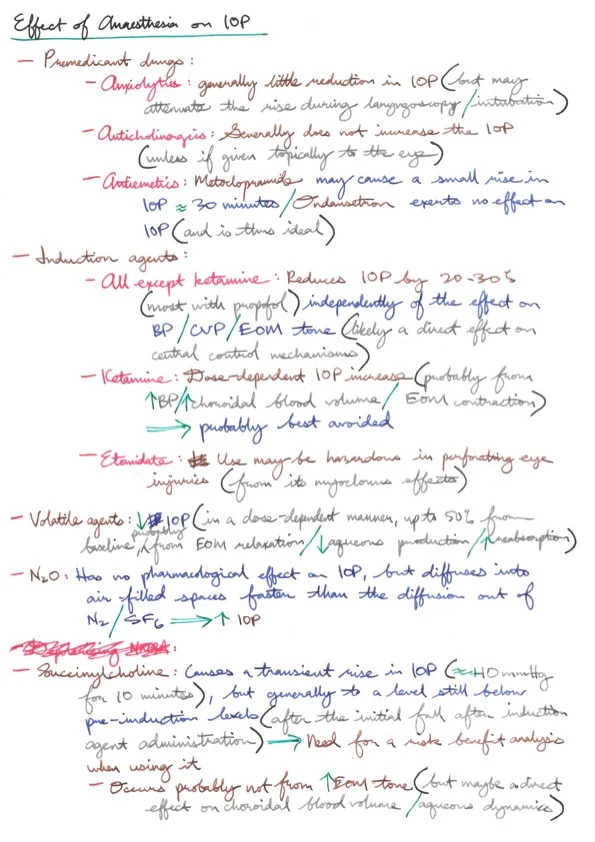 Effect of Anaesthesia on IOP
— Premedicant drugs:
— Anxiolytics: generally little reduction in IOP (but may
attenuate the rise during laryngoscopy/intubation)
— Anticholinergics: Generally does not increase the IOP
(unless if given topically to the eye)
— Antiemetics: Metoclopramide may cause a small rise in
IOP ≈ 30 minutes/Ondansetron exerts no effect on
IOP (and is thus ideal)
— Induction agents:
— All except ketamine: Reduces IOP by 20-30%
(most with propofol) independently of the effect on
BP/CVP/EOM tone (likely a direct effect on
central control mechanisms)
— Ketamine: Dose-dependent IOP increase (probably from
↑BP/↑choroidal blood volume/EOM contraction)
⟹ probably best avoided
— Etomidate: Use may be hazardous in perforating eye
injuries (from its myoclonus effects)
— Volatile agents: ↓IOP (in a dose-dependent manner, up to 50% from
probably
baseline, from EOM relaxation/↓aqueous production/↑reabsorption)
— N2O: Has no pharmacological effect on IOP, but diffuses into
air-filled spaces faster than the diffusion out of
N2/SF6 ⟹ ↑ IOP
— Succinylcholine: Causes a transient rise in IOP (≈+10 mmHg
for 10 minutes), but generally to a level still below
pre-induction levels (after the initial fall after induction
agent administration) → Need for a risk benefit analysis
when using it
— Occurs probably not from ↑EOM tone (but maybe a direct
effect on choroidal blood volume/aqueous dynamics)